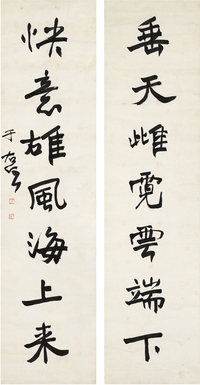 垂天雌霓雲端下
快意雄風海上来
于右任